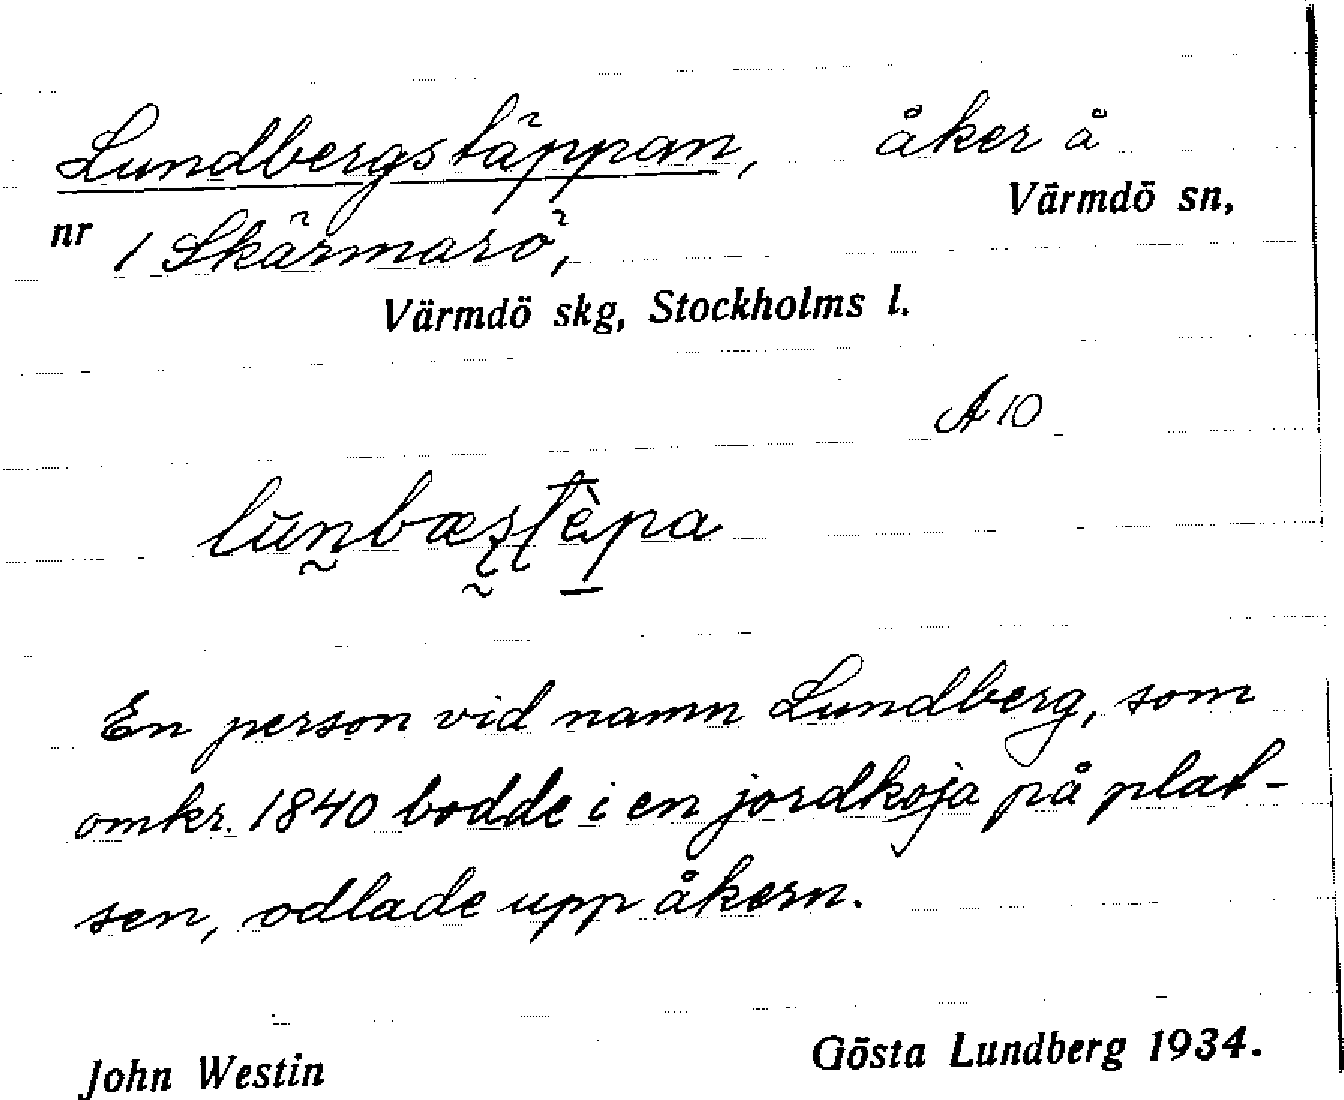 Lundbergstäppan, åker å
Värmdö sn,
nr 1 Skärmarö,
Värmdö skg, Stockholms l.
A 10
En person vid namn Lundberg, som
omkr. 1840 bodde i en jordkoja på plat-
sen, odlade upp åkern.
John Westin Gösta Lundberg 1934.